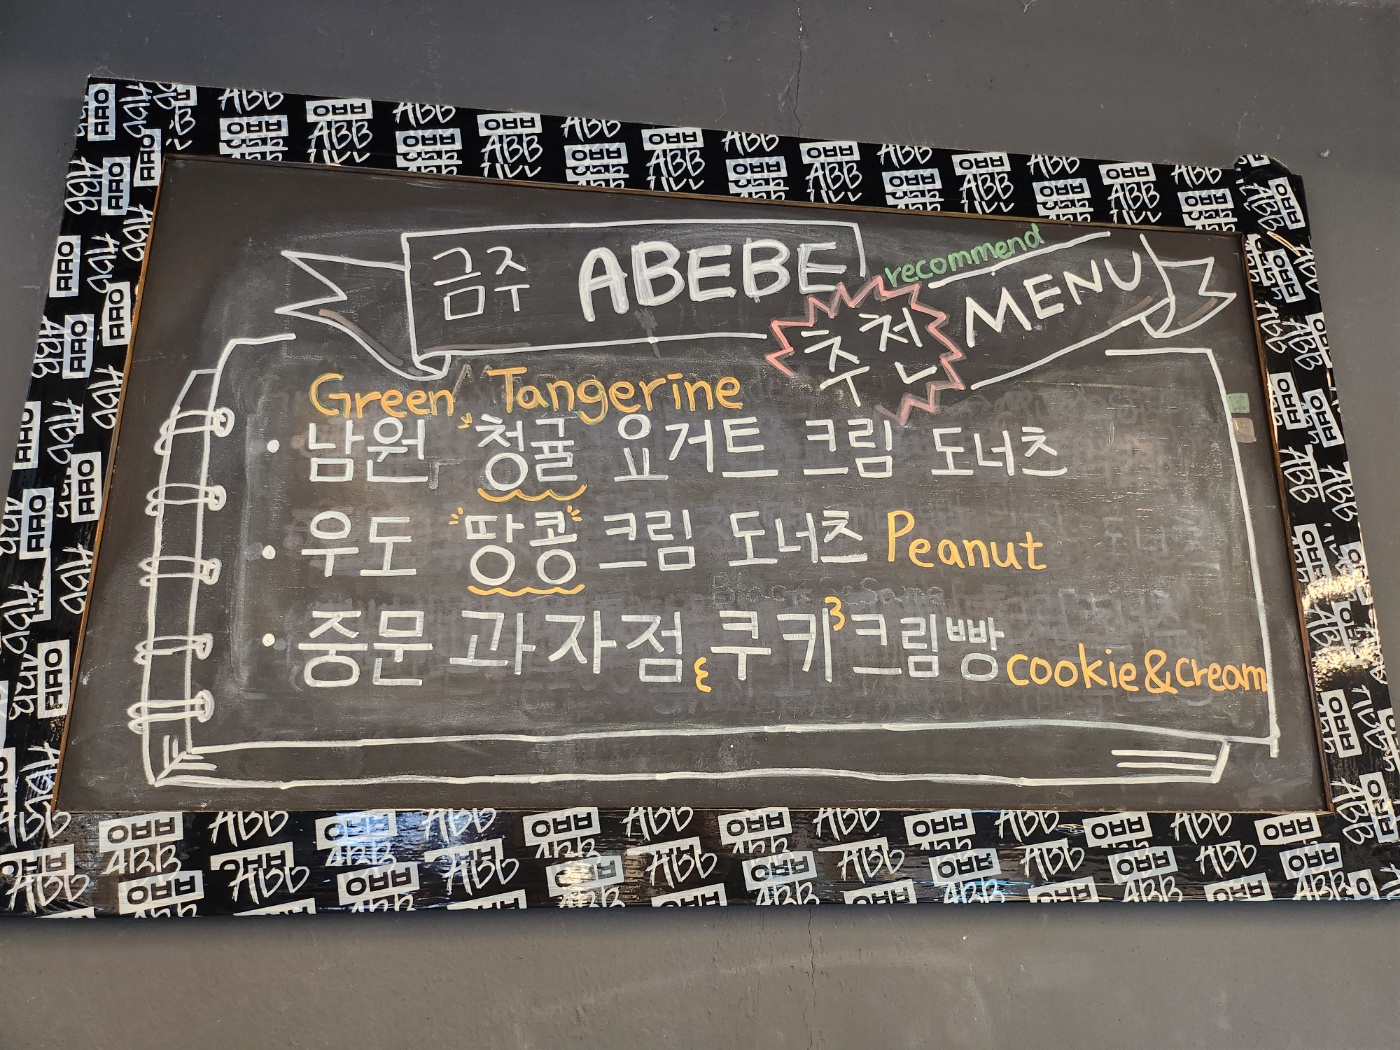 금주 ABEBE 추천 recommend MENU
Green Tangerine
• 남원 "청귤" 요거트 크림 도너츠
• 우도 "땅콩" 크림 도너츠 Peanut
• 중문 과자점 쿠키크림빵 cookie&cream